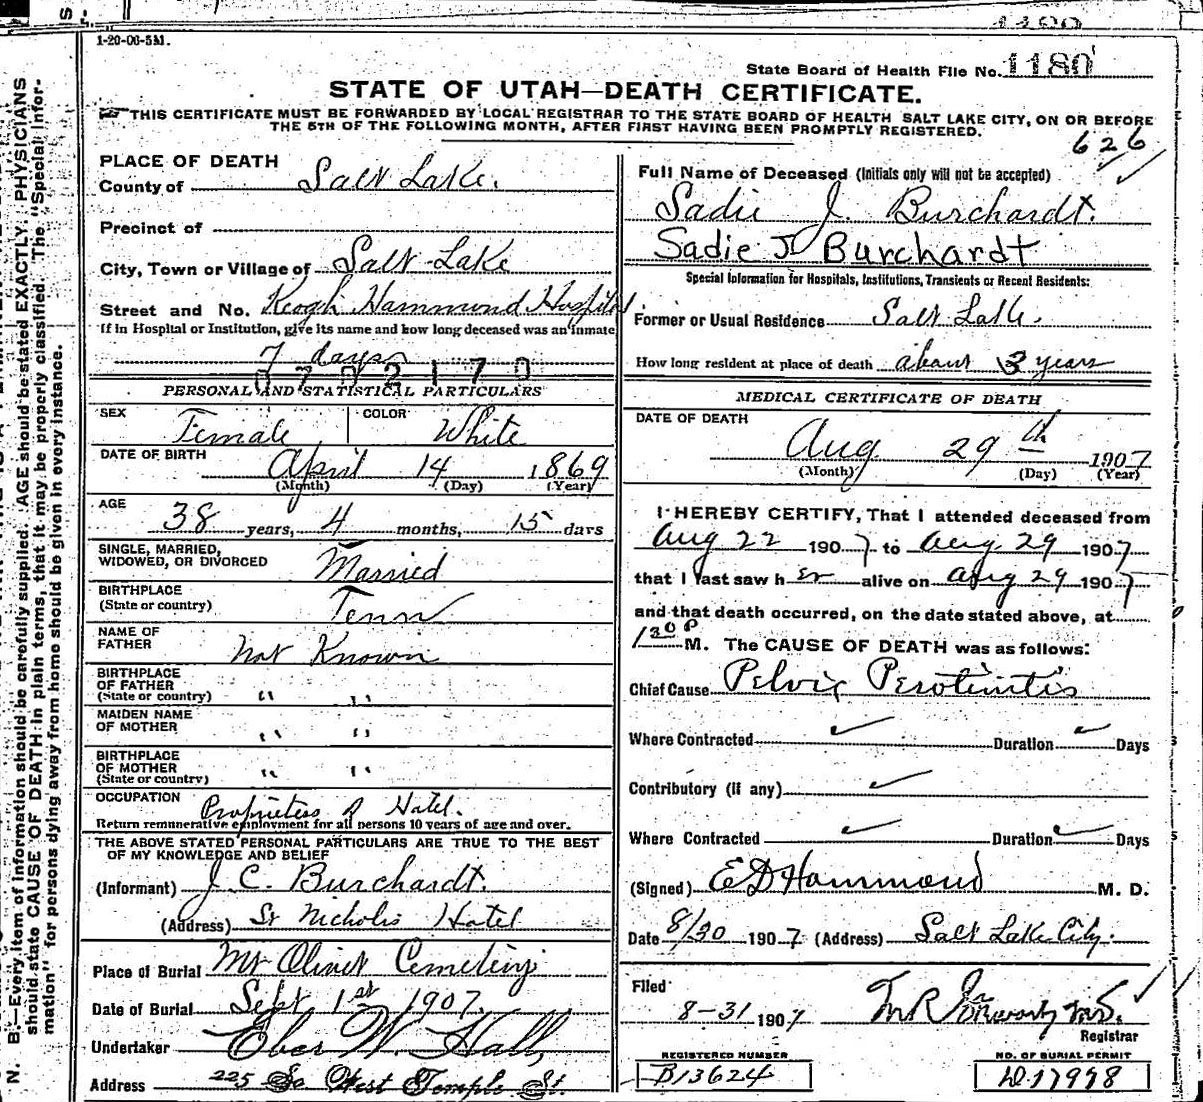 1-20-06-5M.
State Board of Health File No. 1180
STATE OF UTAH—DEATH CERTIFICATE.
THIS CERTIFICATE MUST BE FORWARDED BY LOCAL REGISTRAR TO THE STATE BOARD OF HEALTH SALT LAKE CITY, ON OR BEFORE
THE 5TH OF THE FOLLOWING MONTH, AFTER FIRST HAVING BEEN PROMPTLY REGISTERED.
626
PLACE OF DEATH
County of Salt Lake.
Precinct of
City, Town or Village of Salt Lake
Street and No. Keogh Hammond Hospital
If in Hospital or Institution, give its name and how long deceased was an inmate
7 days
0702170
PERSONAL AND STATISTICAL PARTICULARS
SEX Female COLOR White
DATE OF BIRTH April 14 1869
(Month) (Day) (Year)
AGE 38 years, 4 months, 15 days
SINGLE, MARRIED,
WIDOWED, OR DIVORCED Married
BIRTHPLACE
(State or country) Tenn
NAME OF
FATHER Not Known
BIRTHPLACE
OF FATHER
(State or country) " "
MAIDEN NAME
OF MOTHER " "
BIRTHPLACE
OF MOTHER
(State or country) " "
OCCUPATION Proprietess of Hotel.
Return remunerative employment for all persons 10 years of age and over.
THE ABOVE STATED PERSONAL PARTICULARS ARE TRUE TO THE BEST
OF MY KNOWLEDGE AND BELIEF
(Informant) J. C. Burchardt.
(Address) St Nicholis Hotel
Place of Burial Mt Olivet Cemetery
Date of Burial Sept 1st 1907.
Undertaker Eber W. Hall,
Address 225 So West Temple St.
Full Name of Deceased (Initials only will not be accepted)
Sadie J. Burchardt.
Sadie J Burchardt
Special Information for Hospitals, Institutions, Transients or Recent Residents:
Former or Usual Residence Salt Lake.
How long resident at place of death about 3 years
MEDICAL CERTIFICATE OF DEATH
DATE OF DEATH
Aug 29th 1907
(Month) (Day) (Year)
I HEREBY CERTIFY, That I attended deceased from
Aug 22 1907 to Aug 29 1907
that I last saw her alive on Aug 29 1907
and that death occurred, on the date stated above, at
130 P M. The CAUSE OF DEATH was as follows:
Chief Cause Pelvic Perotinitis
Where Contracted Duration Days
Contributory (if any)
Where Contracted Duration Days
(Signed) E D Hammond M. D.
Date 8/30 1907 (Address) Salt Lake City.
Filed
8-31 1907
Registrar
REGISTERED NUMBER
B13624
NO. OF BURIAL PERMIT
D17998
N. B.—Every item of information should be carefully supplied. AGE should be stated EXACTLY. PHYSICIANS
should state CAUSE OF DEATH in plain terms, that it may be properly classified. The "Special Infor-
mation" for persons dying away from home should be given in every instance.